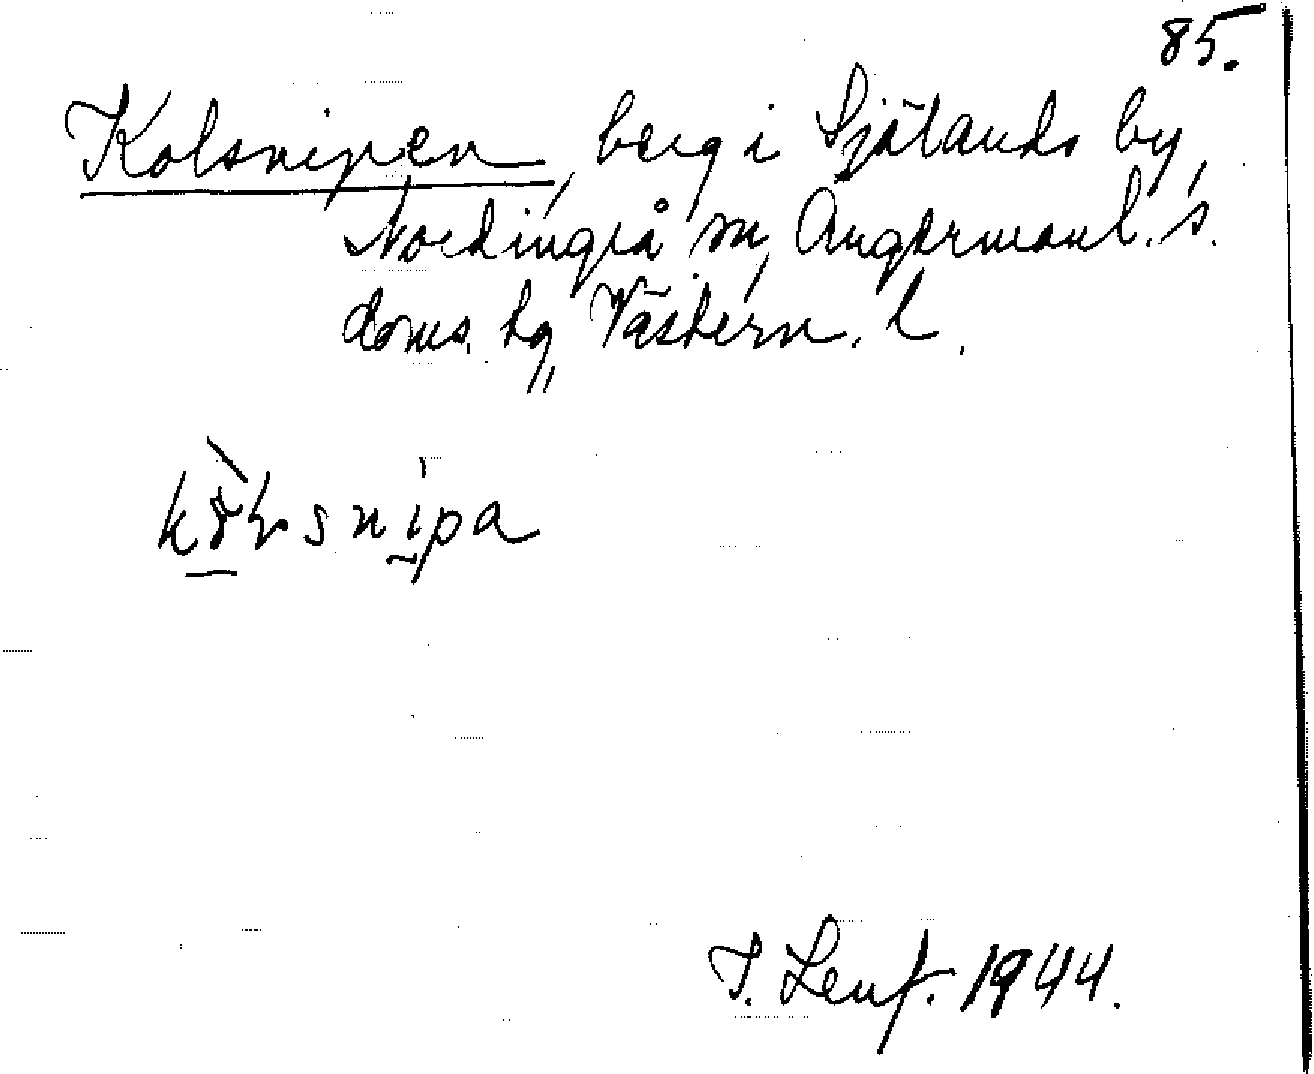 85.
Kolsnipen, berg i Själands by,
Nordingrå sn, Ångermanl. s.
doms. hg, Västern. l.
snipa
1944.